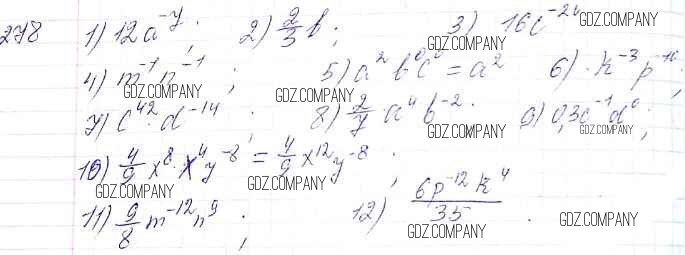 278 1) 12a⁻⁷; 2) 2/3 b; 3) 16c⁻²⁰
4) m⁻¹n⁻¹; 5) a²b⁰c⁰ = a² 6) k⁻³p⁻¹⁰;
7) c⁴²·d⁻¹⁴ 8) 2/7 a⁴b⁻²; 9) 0,3c⁻¹d⁰;
10) 4/9 x⁸·x⁴y⁻⁸ = 4/9 x¹²y⁻⁸;
11) 9/8 m⁻¹²n⁹; 12) 6p⁻¹²k⁴/35.
GDZ.COMPANY
GDZ.COMPANY
GDZ.COMPANY
GDZ.COMPANY
GDZ.COMPANY
GDZ.COMPANY
GDZ.COMPANY
GDZ.COMPANY
GDZ.COMPANY
GDZ.COMPANY
GDZ.COMPANY
GDZ.COMPANY
GDZ.COMPANY